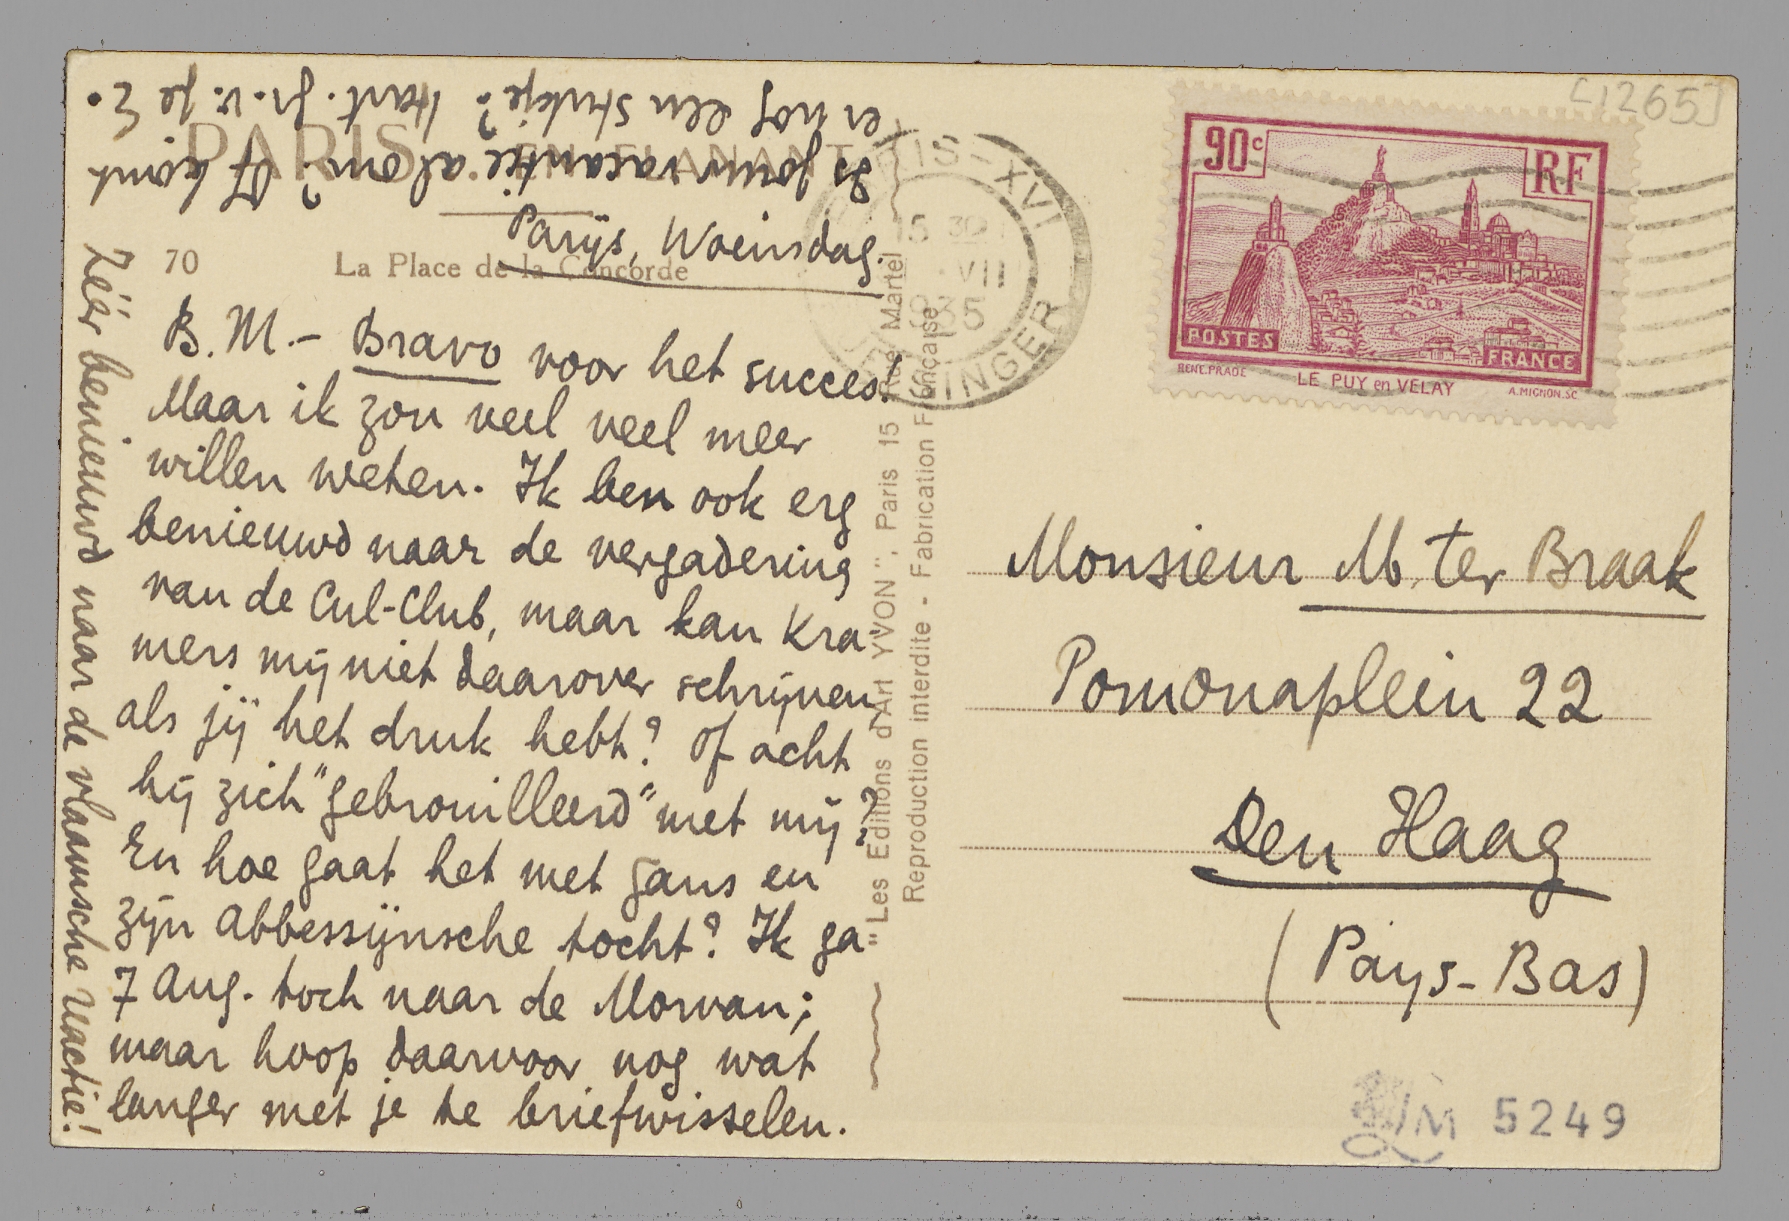 PARIS... EN FLANANT
70 La Place de la Concorde
Parijs, Woensdag.
B.M.- Bravo voor het succes!
Maar ik zou veel veel meer
willen weten. Ik ben ook erg
benieuwd naar de vergadering
van de Cul-Club, maar kan Kra-
mers mij niet daarover schrijven
als jij het druk hebt? Of acht
hij zich "gebrouilleerd" met mij?
En hoe gaat het met Gans en
zijn Abbessijnsche tocht? Ik ga
7 Aug. toch naar de Morvan;
maar hoop daarvoor nog wat
langer met je te briefwisselen.
Zéér benieuwd naar de vlaamsche reactie!
Is jouw vacantie al om? Of komt
er nog een stukje? Hart. gr. v. je E.
"Les Editions d'Art YVON", Paris 15 Rue Martel
Reproduction interdite - Fabrication Française
PARIS-XVI
15 30
VII
1935
SINGER
[1265]
90c
RF
POSTES
FRANCE
RENE.PRADE
LE PUY en VELAY
A.MIGNON.SC
Monsieur M. ter Braak
Pomonaplein 22
Den Haag
(Pays-Bas)
LM 5249